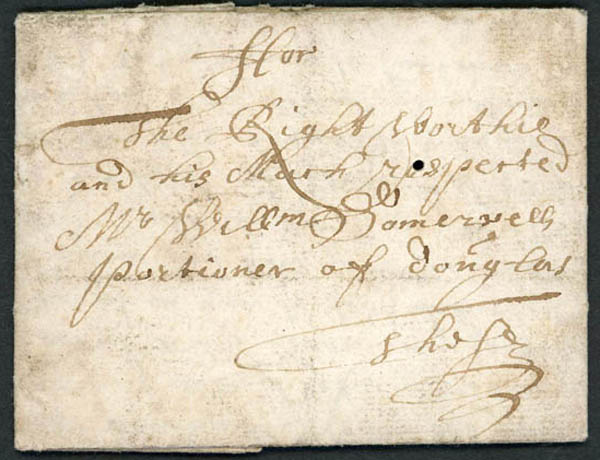 ffor
The Right Worthie
and his Much respected
Mr Willm Somervell
portioner of Douglas
These